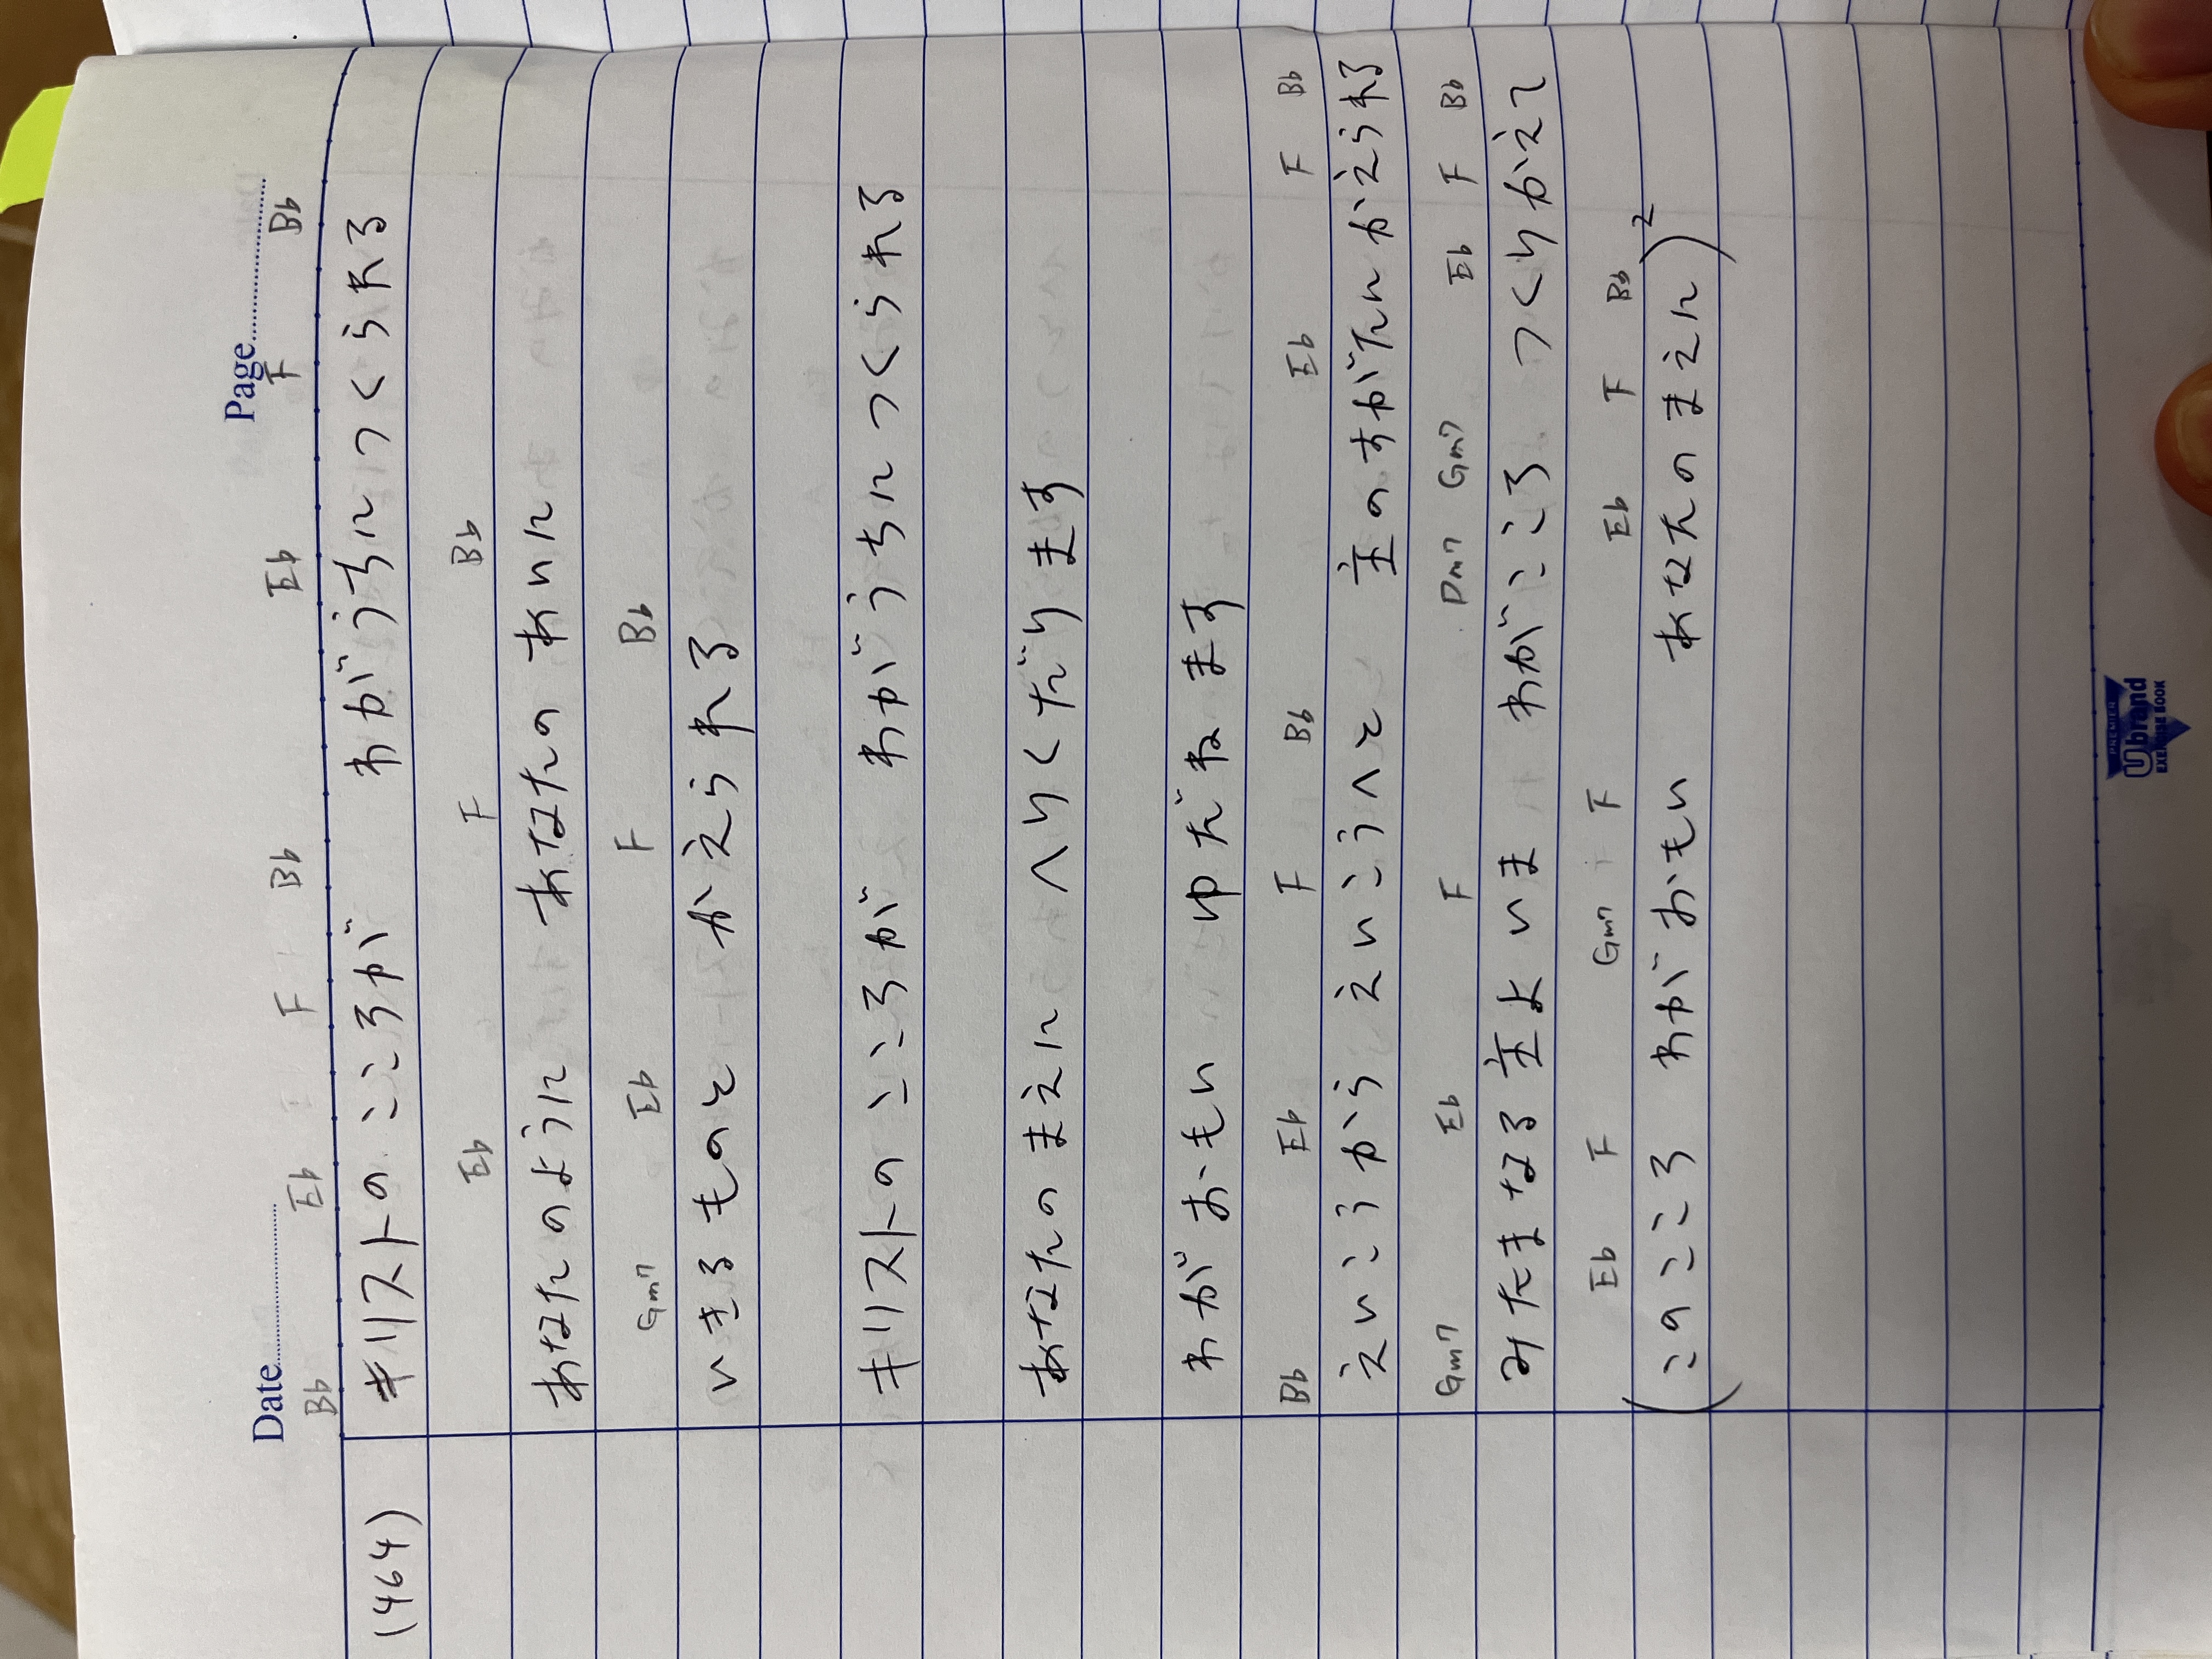 Date Page
Bb Eb F Bb Eb F Bb
(464) キリストの こころが わがうちにつくられる
Eb F Bb
あなたのように あなたの あいに
Gm7 Eb F Bb
いきるものと かえられる
キリストの こころが わがうちに つくられる
あなたの まえに へりくだります
わが おもい ゆだねます
Bb Eb F Bb Eb F Bb
えいこうから えいこうへと 主のすがたにかえられる
Gm7 Eb F Dm7 Gm7 Eb F Bb
みたまなる主よ いま わがこころ つくりかえて
Eb F Gm7 F Eb F Bb
(このこころ わがおもい あなたのまえに)2
PREMIER
Ubrand
EXERCISE BOOK